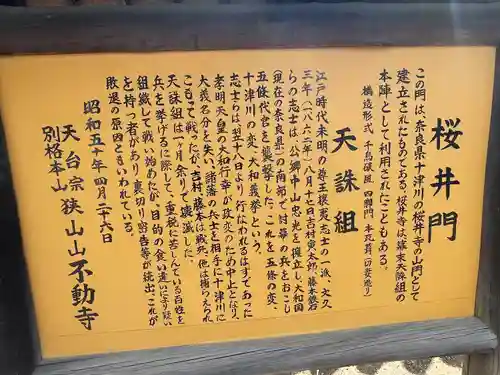 桜井門
この門は、奈良県十津川の桜井寺の山門として
建立されたものである。桜井寺は、幕末天誅組の
本陣として利用されたこともある。
構造形式 千鳥破風 四脚門 本瓦葺(切妻造り)
天誅組
江戸時代末期の尊王攘夷志士の一派、文久
三年(一八六三年)八月十七日吉村寅太郎、藤本鉄石
らの志士は、公卿中山忠光を擁立し、大和国
(現在の奈良県)の南部で討幕の兵をおこし
五條代官を襲撃した。これを五條の変、
十津川の変、大和義挙という。
志士らは、翌十八日より行なわれるはずであった
孝明天皇の大和行幸が政変のため中止となり、
大義名分を失い、諸藩の兵士を相手に十津川に
こもって戦ったが、吉村、藤本は戦死、他は捕らえられ
天誅組は一ヶ月余りで壊滅した。
兵を挙げるに際して、重税に苦しんでいる百姓を
組織して戦い始めたが、目的の食い違いにより疑い
を持つ者があり、裏切り密告等が続出、これが
敗退の原因ともいわれている。
昭和五十年四月二十六日
天台宗 狭山山不動寺
別格本山